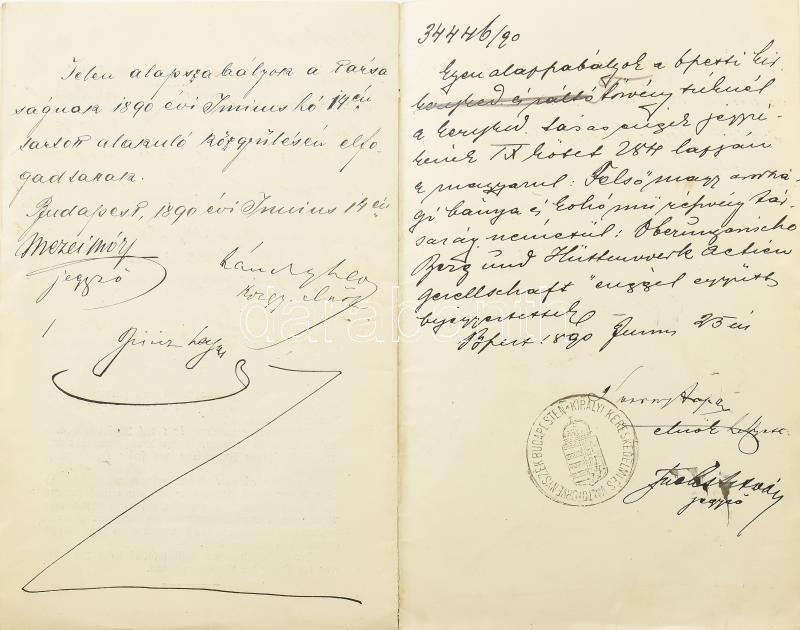 Jelen alapszabályok a társa
ságnak 1890 évi Junius hó 14 én
tartott alakuló közgyülésén elfo-
gadtattak.
Budapest, 1890 évi Junius 14 én
Mezei Mór
jegyző
közgy. elnök
34446/90
Ezen alapszabályok a bpesti kir.
keresked és váltó törvényszéknél
a keresked. társas cégek jegyzé-
kének IX kötet 284 lapján
a magyarul: Felső magyarorszá-
gi bánya és kohó mű részvény tár-
saság németül: Oberungarische
Berg und Hüttenwerk Actien
Gesellschaft" czéggel együtt
bejegyeztettek
Bpest 1890 Junius 25 én
elnök helyett.
István
jegyző
BUDAPESTEN • KIRÁLYI KERESKEDELMI ÉS VÁLTÓTÖRVÉNYSZÉK
darabanth